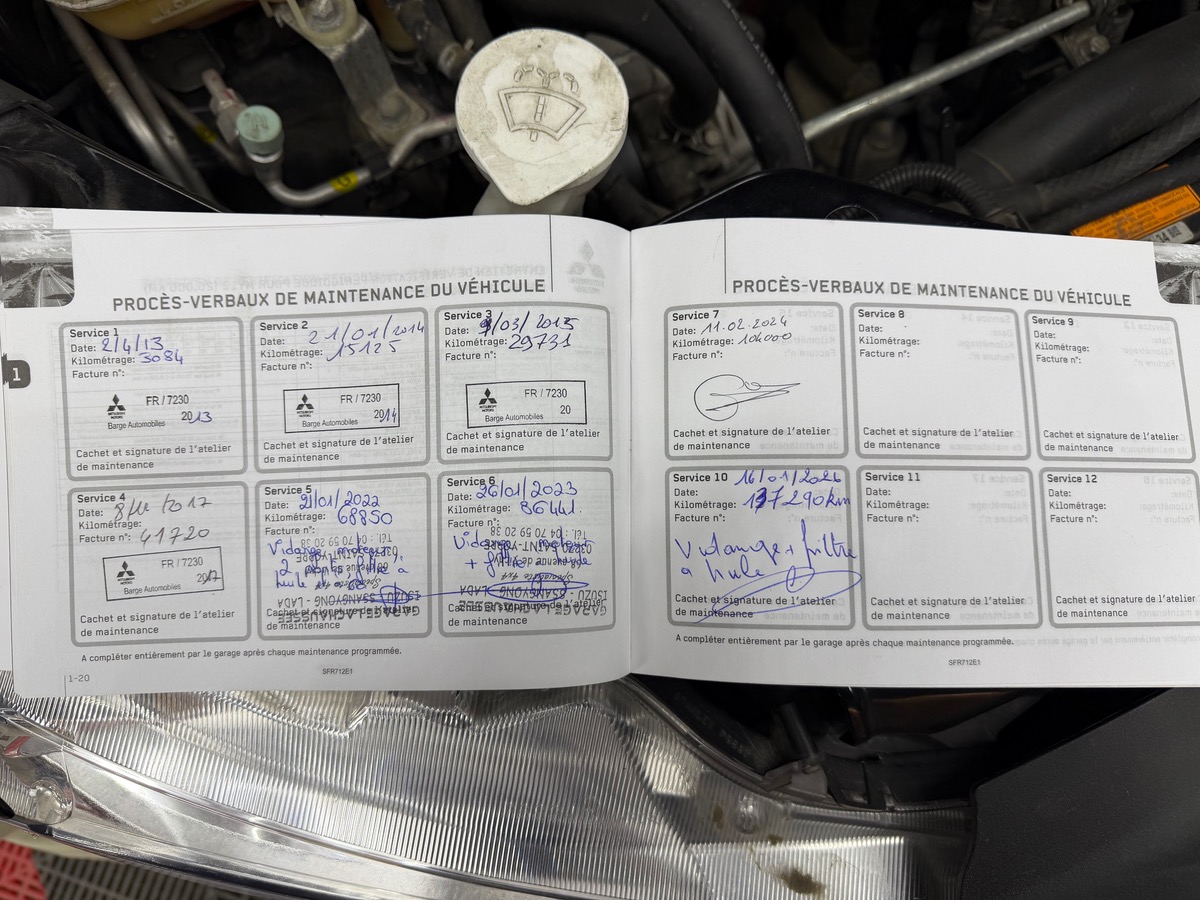 PROCÈS-VERBAUX DE MAINTENANCE DU VÉHICULE
1
Service 1
Date: 2/4/13
Kilométrage: 3084
Facture n°:
FR / 7230
MITSUBISHI MOTORS
2013
Barge Automobiles
Cachet et signature de l'atelier
de maintenance
Service 2
Date: 21/01/2014
Kilométrage: 15125
Facture n°:
FR / 7230
MITSUBISHI MOTORS
2014
Barge Automobiles
Cachet et signature de l'atelier
de maintenance
Service 3
Date: 9/03/2015
Kilométrage: 29731
Facture n°:
FR / 7230
MITSUBISHI MOTORS
20
Barge Automobiles
Cachet et signature de l'atelier
de maintenance
Service 4
Date: /2017
Kilométrage:
41720
Facture n°:
FR / 7230
MITSUBISHI MOTORS
2017
Barge Automobiles
Cachet et signature de l'atelier
de maintenance
Service 5
Date: 21/01/2022
Kilométrage: 68850
Facture n°:
Vidange moteur
2 ponts filtre à
huile
GARAGE LACHAUSSEE
ISUZU - SSANGYONG - LADA
Spécialiste 4x4
avenue de
03270 SAINT-YORRE
Tél. : 04 70 59 20 38
Cachet et signature de l'atelier
de maintenance
Service 6
Date: 26/01/2023
Kilométrage: 86441
Facture n°:
Vidange moteur
+ filtre
GARAGE LACHAUSSEE
ISUZU - SSANGYONG - LADA
Spécialiste 4x4
avenue de
03270 SAINT-YORRE
Tél. : 04 70 59 20 38
Cachet et signature de l'atelier
de maintenance
A compléter entièrement par le garage après chaque maintenance programmée.
1-20
SFR712E1
PROCÈS-VERBAUX DE MAINTENANCE DU VÉHICULE
Service 7
Date: 11.02.2024
Kilométrage: 104000
Facture n°:
Cachet et signature de l'atelier
de maintenance
Service 8
Date:
Kilométrage:
Facture n°:
Cachet et signature de l'atelier
de maintenance
Service 9
Date:
Kilométrage:
Facture n°:
Cachet et signature de l'atelier
de maintenance
Service 10
Date: 16/01/2026
Kilométrage: 137290km
Facture n°:
Vidange + filtre
a huile
Cachet et signature de l'atelier
de maintenance
Service 11
Date:
Kilométrage:
Facture n°:
Cachet et signature de l'atelier
de maintenance
Service 12
Date:
Kilométrage:
Facture n°:
Cachet et signature de l'atelier
de maintenance
A compléter entièrement par le garage après chaque maintenance programmée.
SFR712E1